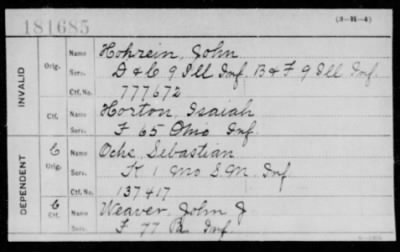 181685
(3-H-4)
INVALID
Orig. Name Hohrein, John
Serv. D & C 9 Ill Inf, B & F 9 Ill Inf.
Ctf. No. 777672
Ctf. Name Horton, Isaiah
Serv. F 65 Ohio Inf.
DEPENDENT
C Orig. Name Ochs, Sebastian
Serv. K 1 Mo S.M. Inf
Ctf. No. 137417
C Ctf. Name Weaver, John J
Serv. F 77 Pa Inf.